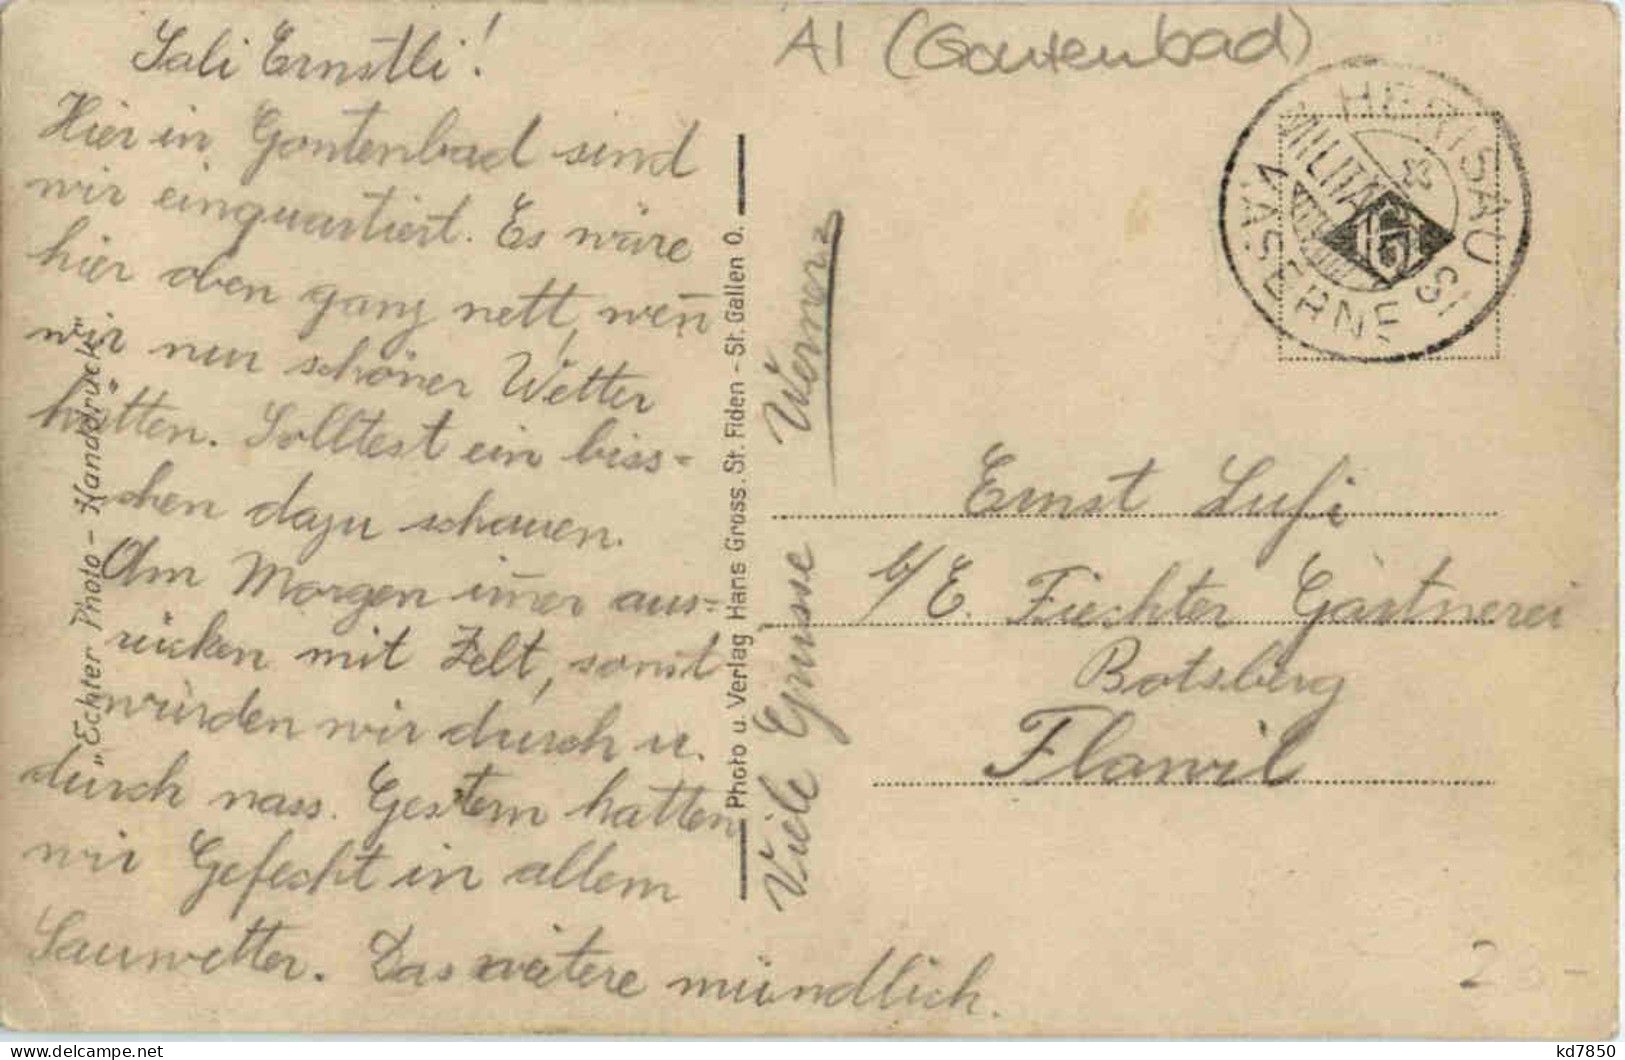 Sali Ernstli!
Hier in Gontenbad sind
wir einquartiert. Es wäre
hier oben ganz nett, wen̄
wir nur schöner Wetter
hätten. Solltest ein biss-
chen dazu schauen.
Am Morgen im̄er aus-
rücken mit Zelt, sonst
würden wir durch u.
durch nass. Gestern hatten
wir Gefecht in allem
Sauwetter. Das weitere mündlich.
Viele Grüsse Werner
"Echter Photo-Handdruck"
Photo u. Verlag Hans Gross. St. Fiden - St. Gallen O.
AI (Gontenbad)
HERISAU
MILITÄR
KASERNE
Ernst Lufi
b/E. Fiechter Gärtnerei
Botsberg
Flawil
2
kd7850